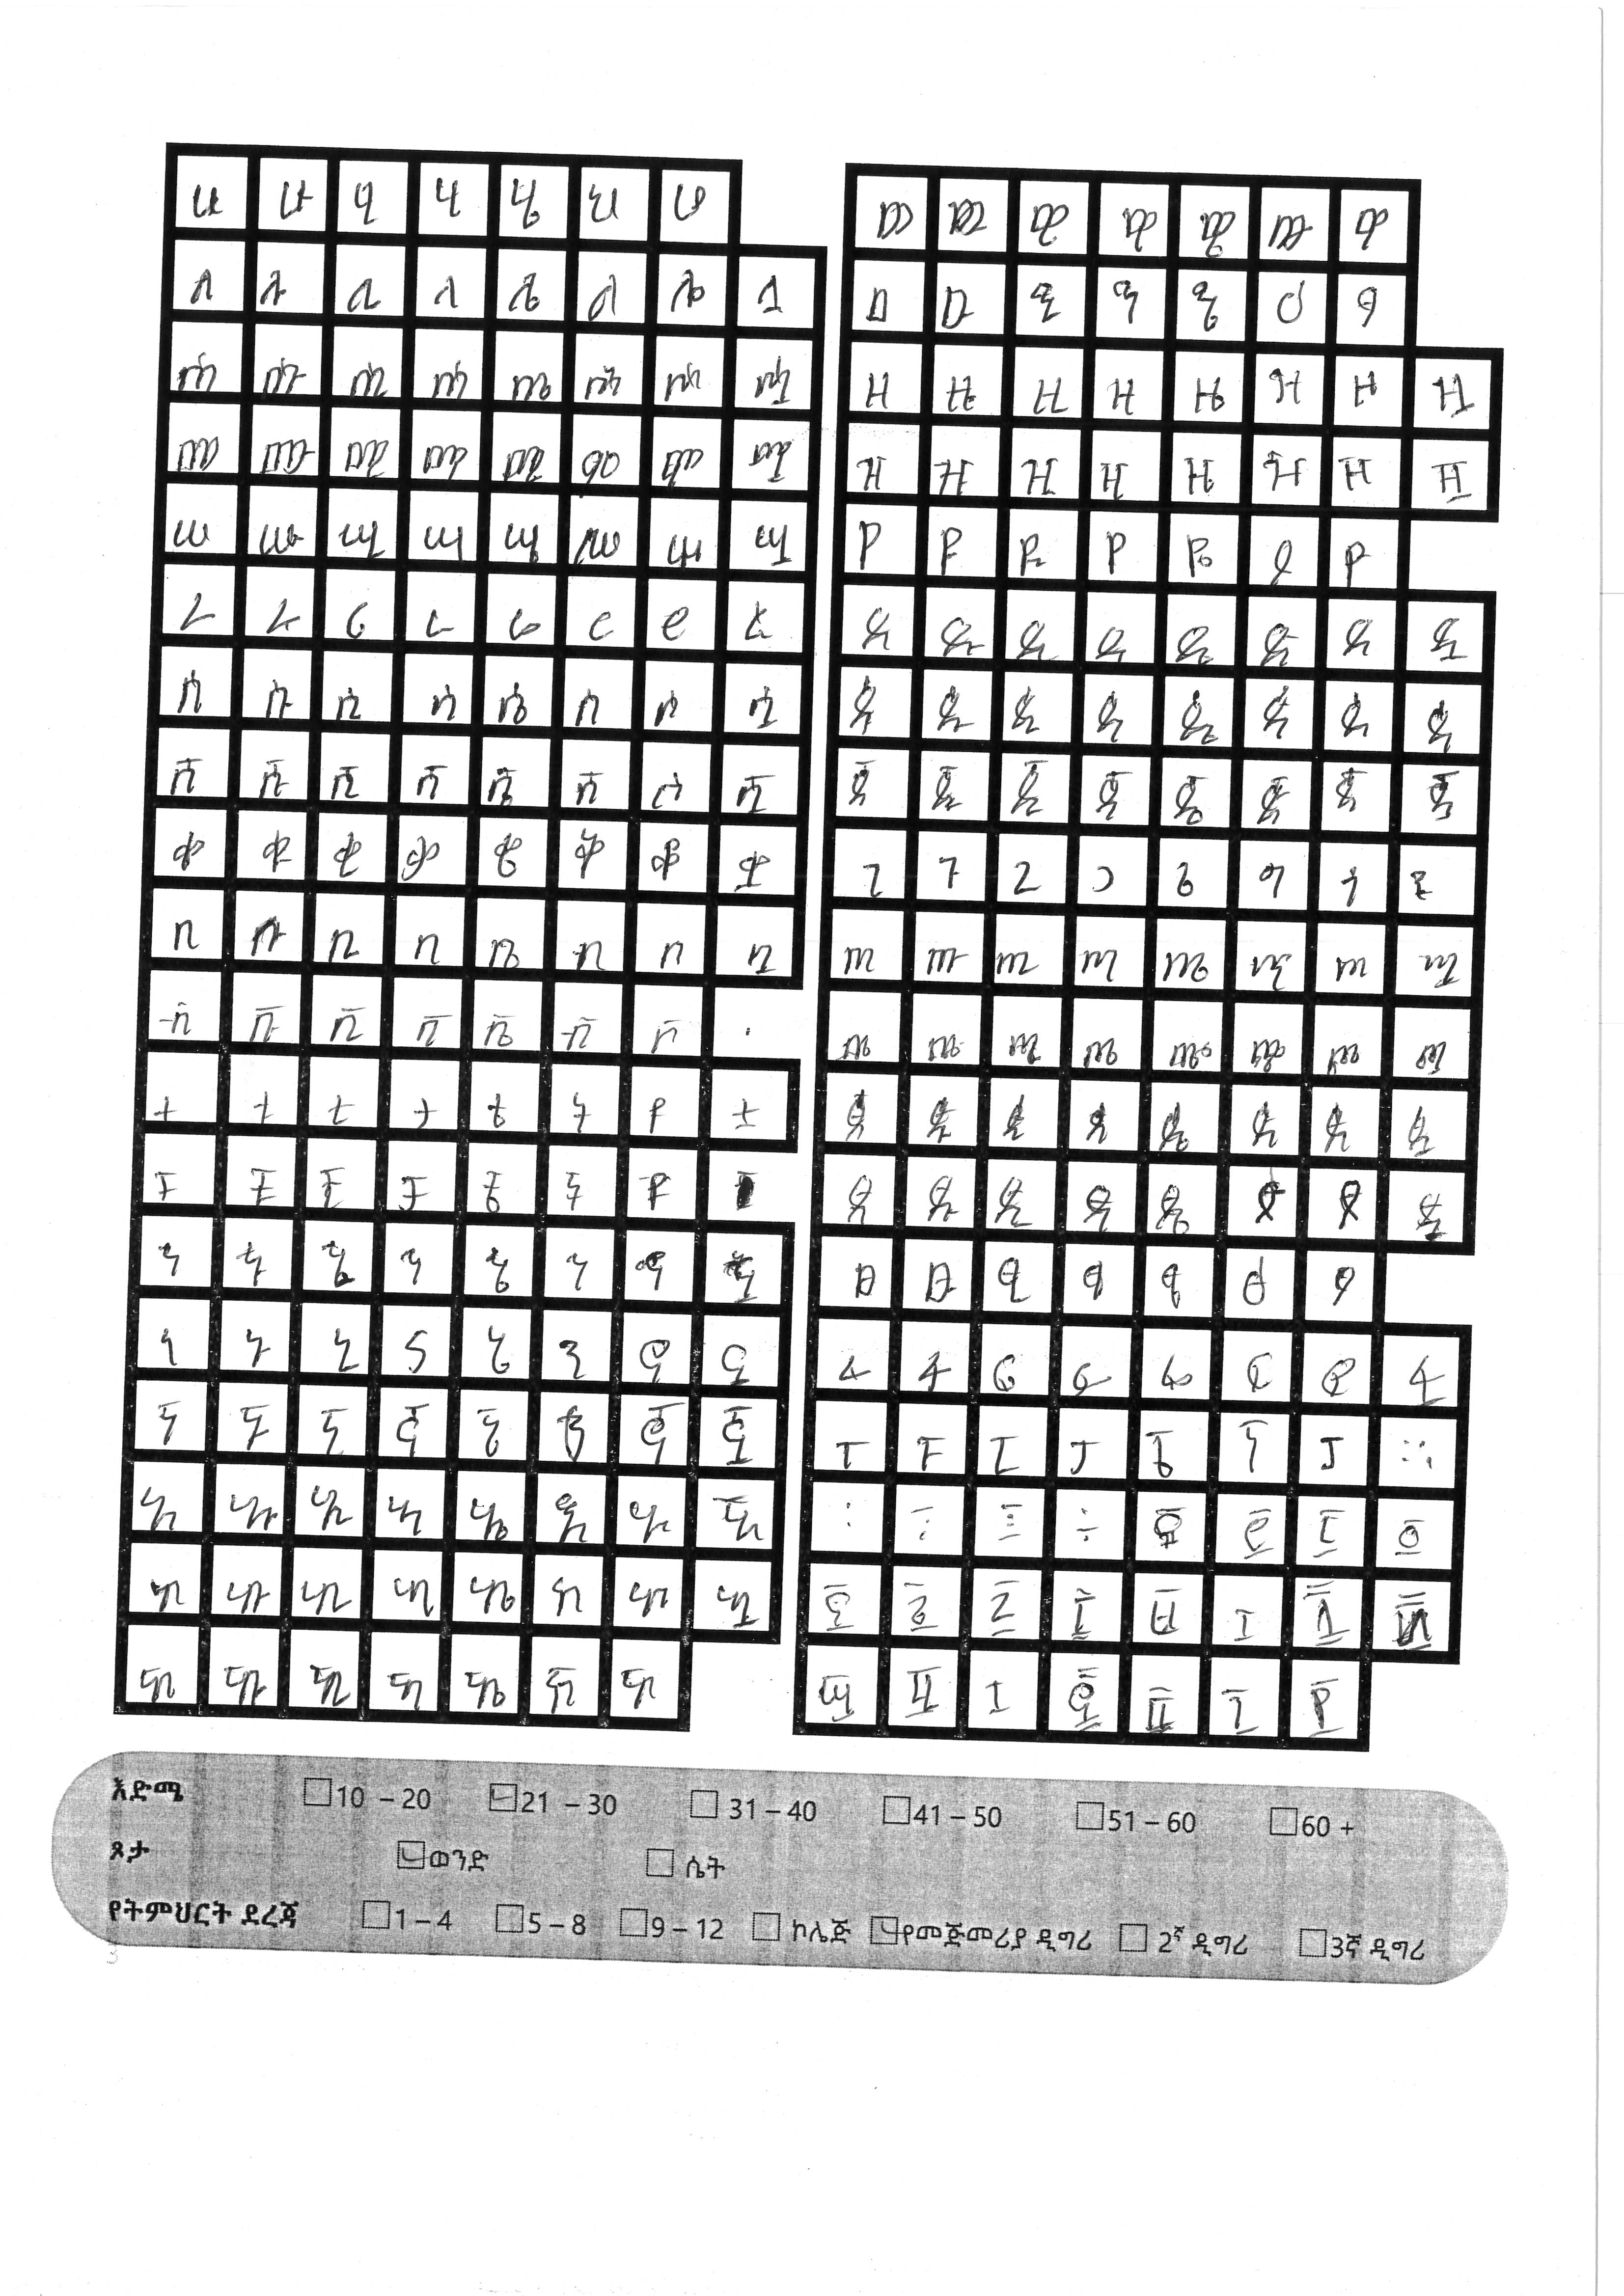 ሀ ሁ ሂ ሃ ሄ ህ ሆ
ለ ሉ ሊ ላ ሌ ል ሎ ሏ
ሐ ሑ ሒ ሓ ሔ ሕ ሖ ሗ
መ ሙ ሚ ማ ሜ ም ሞ ሟ
ሠ ሡ ሢ ሣ ሤ ሥ ሦ ሧ
ረ ሩ ሪ ራ ሬ ር ሮ ሯ
ሰ ሱ ሲ ሳ ሴ ስ ሶ ሷ
ሸ ሹ ሺ ሻ ሼ ሽ ሾ ሿ
ቀ ቁ ቂ ቃ ቄ ቅ ቆ ቋ
በ ቡ ቢ ባ ቤ ብ ቦ ቧ
ቨ ቩ ቪ ቫ ቬ ቭ ቮ
ተ ቱ ቲ ታ ቴ ት ቶ ቷ
ቸ ቹ ቺ ቻ ቼ ች ቾ
ኀ ኁ ኂ ኃ ኄ ኅ ኆ ኋ
ነ ኑ ኒ ና ኔ ን ኖ ኗ
ኘ ኙ ኚ ኛ ኜ ኝ ኞ ኟ
አ ኡ ኢ ኣ ኤ እ ኦ ኧ
ከ ኩ ኪ ካ ኬ ክ ኮ ኳ
ኸ ኹ ኺ ኻ ኼ ኽ ኾ
ወ ዉ ዊ ዋ ዌ ው ዎ
ዐ ዑ ዒ ዓ ዔ ዕ ዖ
ዘ ዙ ዚ ዛ ዜ ዝ ዞ ዟ
ዠ ዡ ዢ ዣ ዤ ዥ ዦ ዧ
የ ዩ ዪ ያ ዬ ይ ዮ
ደ ዱ ዲ ዳ ዴ ድ ዶ ዷ
ጀ ጁ ጂ ጃ ጄ ጅ ጆ ጇ
ገ ጉ ጊ ጋ ጌ ግ ጎ
ጠ ጡ ጢ ጣ ጤ ጥ ጦ ጧ
ጨ ጩ ጪ ጫ ጬ ጭ ጮ ጯ
ጰ ጱ ጲ ጳ ጴ ጵ ጶ ጷ
ጸ ጹ ጺ ጻ ጼ ጽ ጾ ጿ
ፀ ፁ ፂ ፃ ፄ ፅ ፆ
ፈ ፉ ፊ ፋ ፌ ፍ ፎ ፏ
ፐ ፑ ፒ ፓ ፔ ፕ ፖ
እድሜ 10 – 20 21 – 30 31 – 40 41 – 50 51 – 60 60 +
ጾታ ወንድ ሴት
የትምህርት ደረጃ 1 – 4 5 – 8 9 – 12 ኮሌጅ የመጅመሪያ ዲግሪ 2ኛ ዲግሪ 3ኛ ዲግሪ